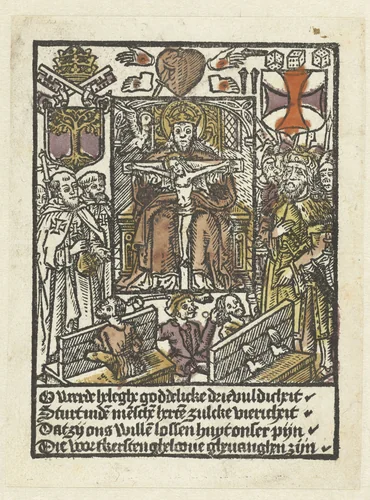 O werde heleghe goddelicke drievuldicheit
Stort inde mēsche herte zulcke viericheit
Dat zy ons willē lossen huyt onser pijn
Die voor tkersten ghelooue gheuanghen zijn